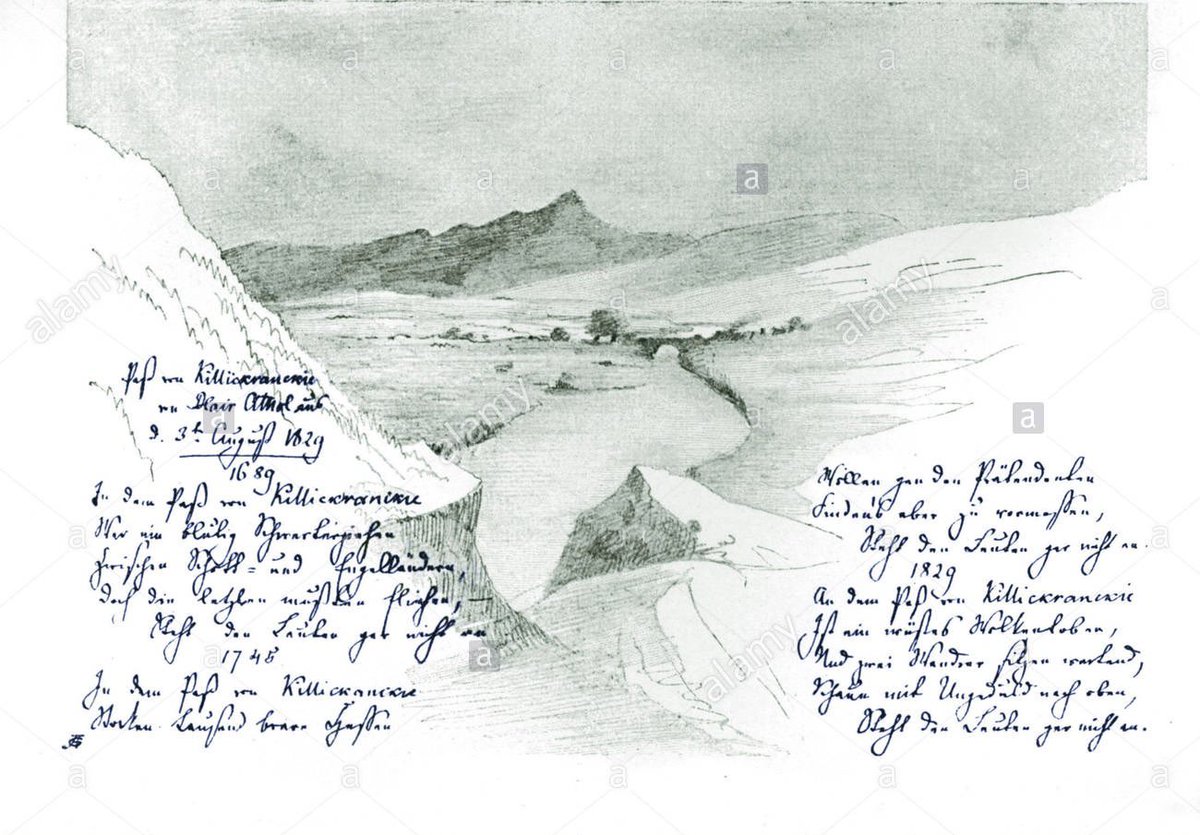 Paß von Killickranckie
von Blair Athol aus
d. 3t August 1829
1689
In dem Paß von Killickranckie
War ein blutig Schwerterziehen
Zwischen Schott= und Engelländern,
doch die letzten mußten fliehen,
Steht den Leuten gar nicht an
1745
In dem Paß von Killickranckie
Stocken tausend brave Hessen
Wollen gen den Prätendenten
Findens aber zu vermessen,
Steht den Leuten gar nicht an.
1829
An dem Paß von Killickranckie
Ist ein wüstes Wolkentoben,
Und zwei Wandrer sitzen wartend,
Schaun mit Ungeduld nach oben,
Steht den Leuten gar nicht an.
alamy
alamy
alamy
alamy